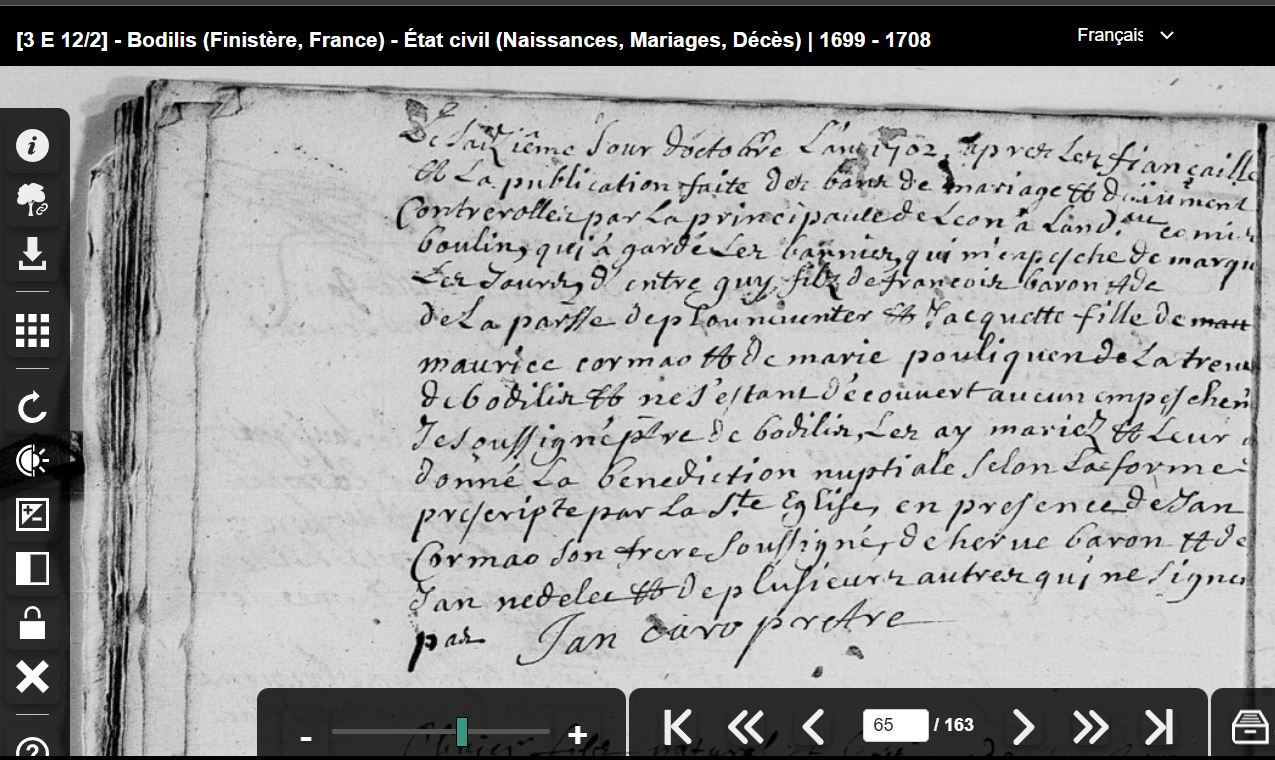 [3 E 12/2] - Bodilis (Finistère, France) - État civil (Naissances, Mariages, Décès) | 1699 - 1708
Français
Le saiziême jour d'octobre L'an 1702, apres Les fiançaille
et La publication faite des bans de mariage et duument
Controrolles par La principaute de Leon à Land:au
boulin, qui à gardé Les bannies, qui m'enpesche de marqu
Les Jours, d'entre guy, filz de francois baron et de
de La parsse de plouneuenter et Jacquette fille de
maurice cormao et de marie pouliquen de La treu
de bodilis et ne s'estant découuert aucun empeschem
Je soussigné ptre de bodilis, Les ay mariez et Leur
donné La benediction nuptiale selon La forme
prescripte par La Ste Eglise, en presence de Jan
Cormao son frere soussigné, de herue baron et de
Jan nedelec et de plusieurs autres qui ne signe
pas Jan pretre
-
+
65
/ 163